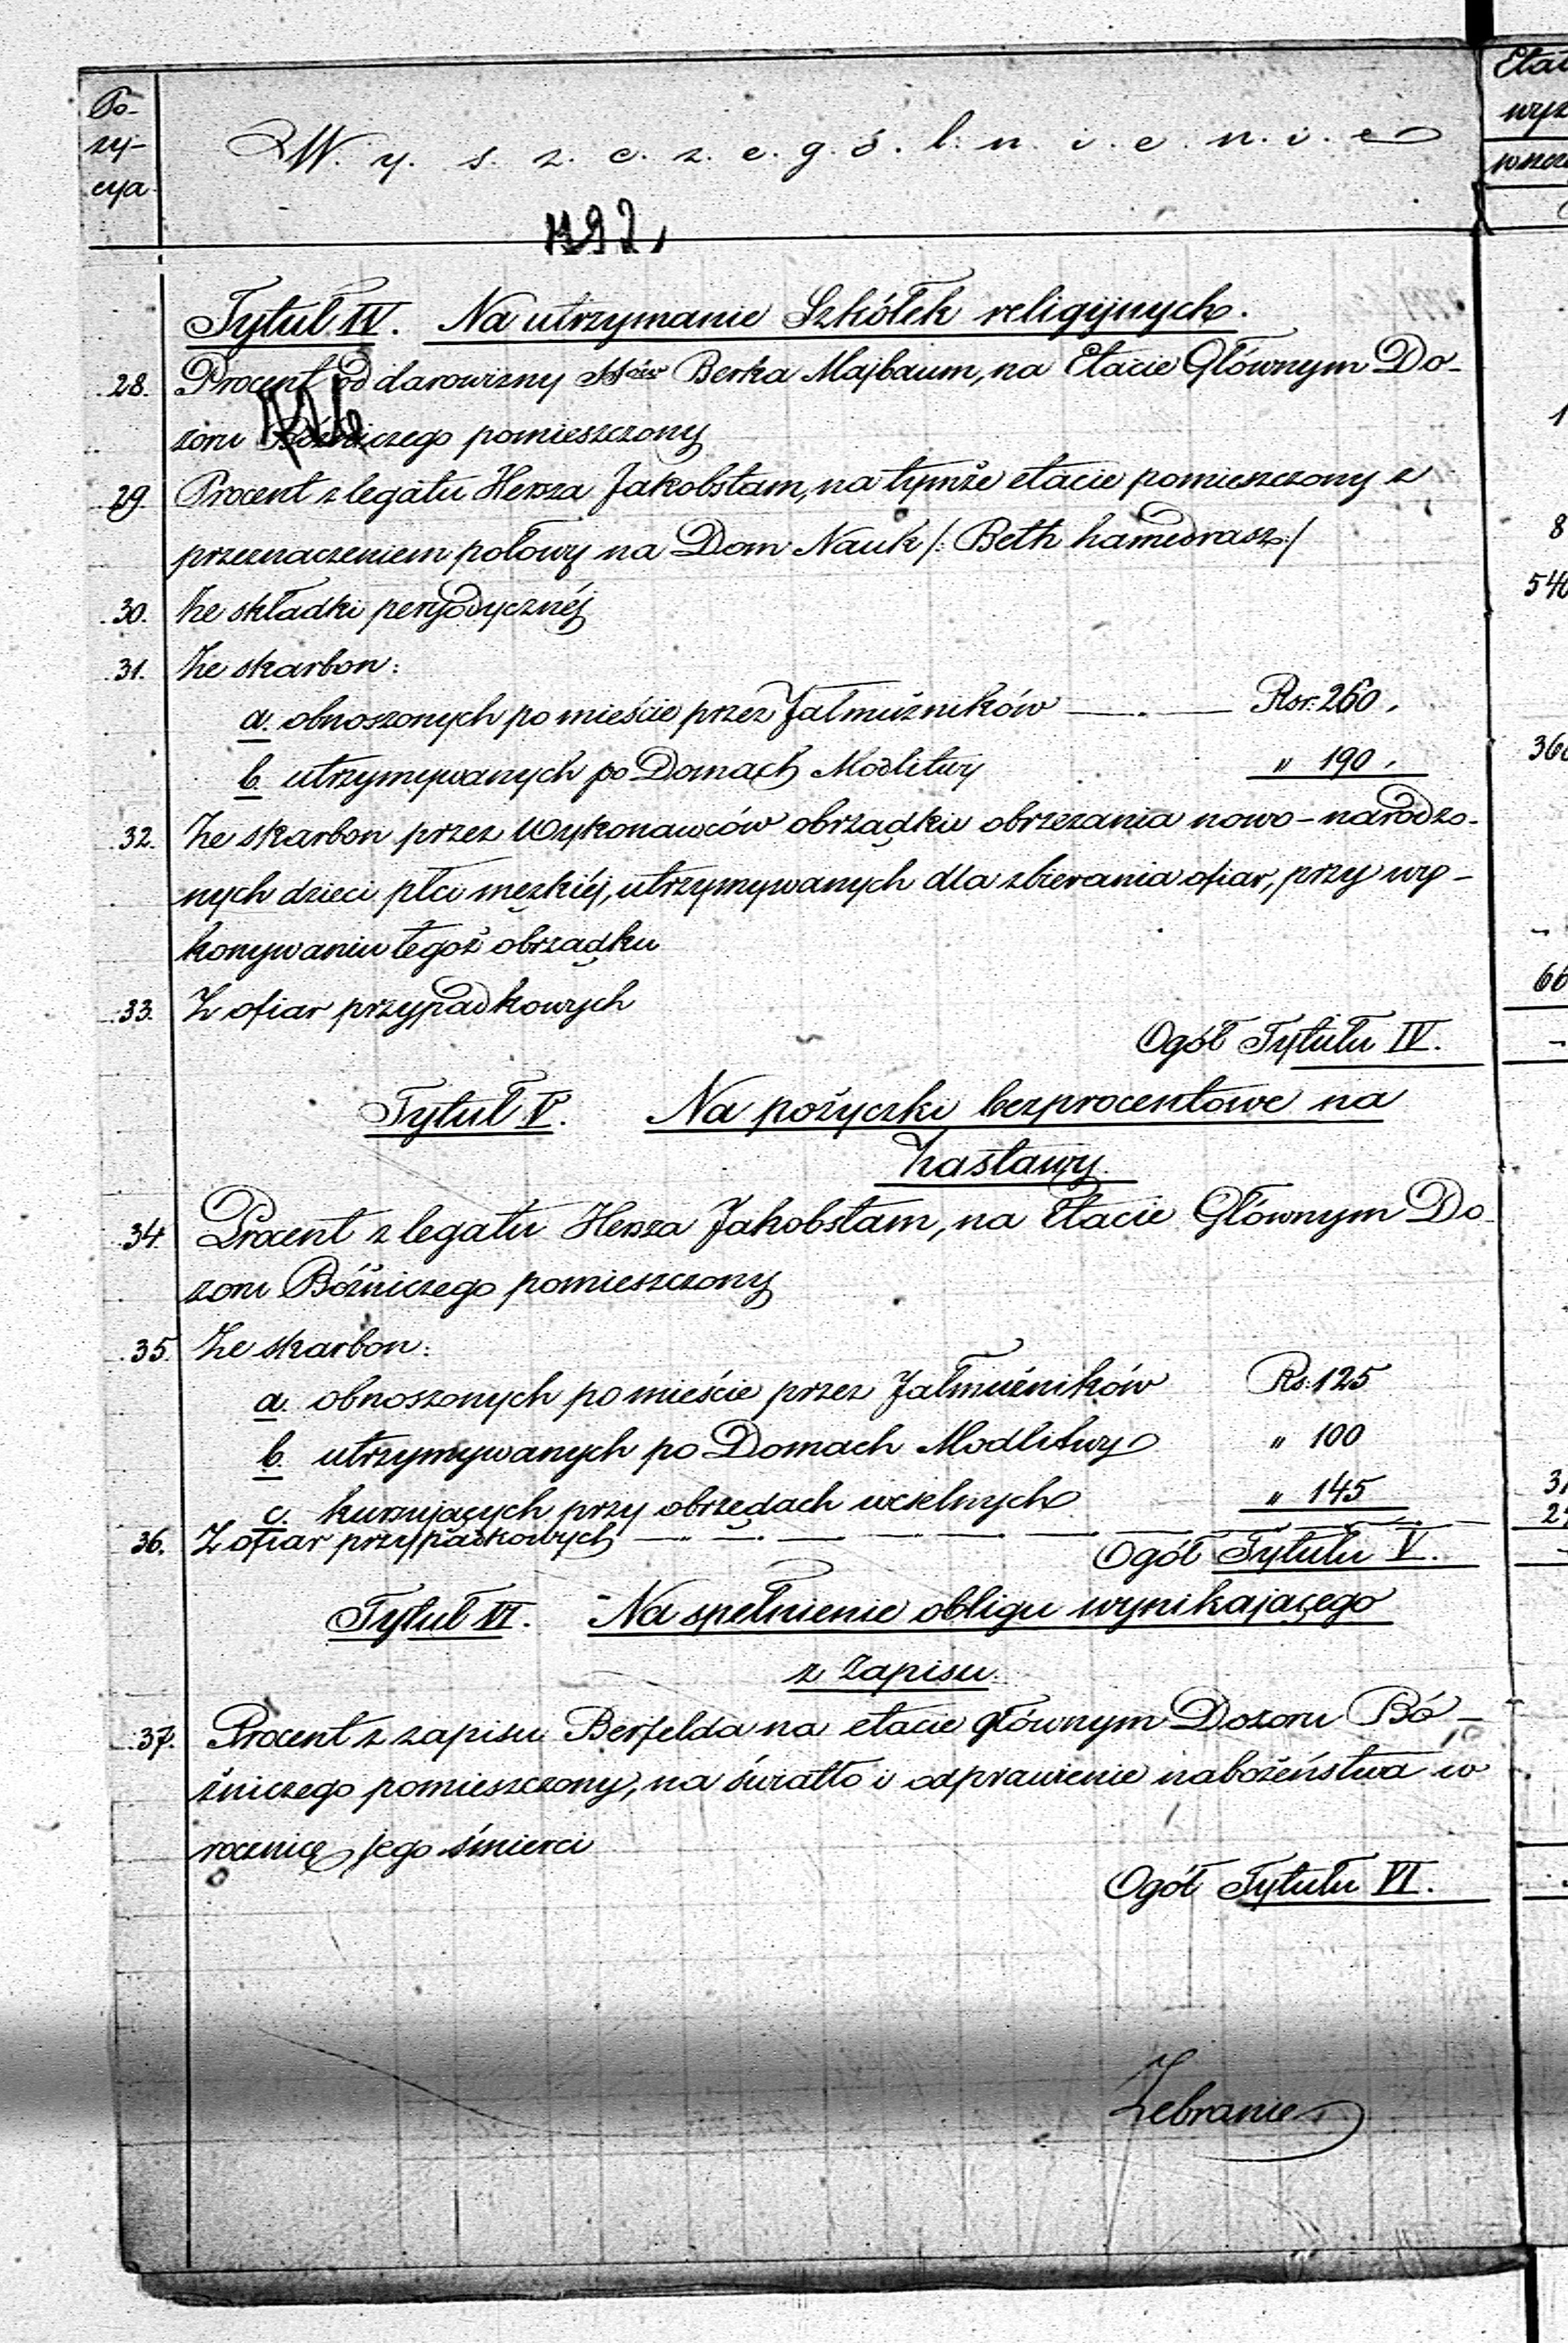 Po-
zy-
cya
W. y. s. z. c. z. e. g. ó. l. n. i. e. n. i. e
Etat
wyz
wnos
Tytuł IV. Na utrzymanie Szkółek religijnych.
28. Procent od darowizny SSów Berka Majbaum, na Etacie Głównym Do-
zoru Bóźniczego pomieszczony
1
29. Procent z legatu Hersza Jakobstam, na tymże etacie pomieszczony z
przeznaczeniem połowy na Dom Nauk /: Beth hamedrasz :/
8
30. Ze składki peryodycznéj
540
31. Ze skarbon:
a. obnoszonych po mieście przez Jałmużników Rsr: 260.
b. utrzymywanych po Domach Modlitwy " 190.
360
32. Ze skarbon przez Wykonawców obrządku obrzezania nowo-narodzo-
nych dzieci płci męzkiéj, utrzymywanych dla zbierania ofiar, przy wy-
konywaniu tegoż obrządku
33. Z ofiar przypadkowych
66
Ogół Tytułu IV.
Tytuł V. Na pożyczki bezprocentowe na
Zastawy.
34. Procent z legatu Hersza Jakobstam, na Etacie Głównym Do-
zoru Bóźniczego pomieszczony
35. Ze skarbon:
a. obnoszonych po mieście przez Jałmużników Rs: 125
b. utrzymywanych po Domach Modlitwy " 100
c. kursujących przy obrzędach weselnych " 145
36. Z ofiar przypadkowych
Ogół Tytułu V.
Tytuł VI. Na spełnienie obligu wynikającego
z Zapisu.
37. Procent z zapisu Berfelda na etacie głównym Dozoru Bó-
źniczego pomieszczony, na światło i odprawienie nabożeństwa w
rocznicę jego śmierci
Ogół Tytułu VI.
Zebranie